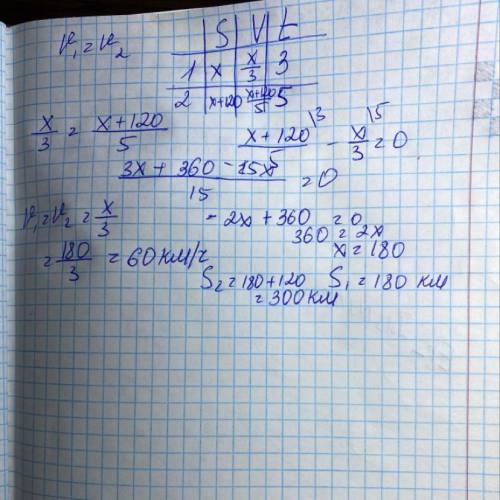 V₁ = V₂
S | V | t
1 | x | x/3 | 3
2 | x+120 | x+120/5 | 5
x/3 = x+120/5
x+120/5 \3 - x/3 \5 = 0
3x + 360 - 5x/15 = 0
V₁ = V₂ = x/3
- 2x + 360 = 0
360 = 2x
x = 180
= 180/3 = 60 км/ч
S₂ = 180 + 120
= 300 км
S₁ = 180 км